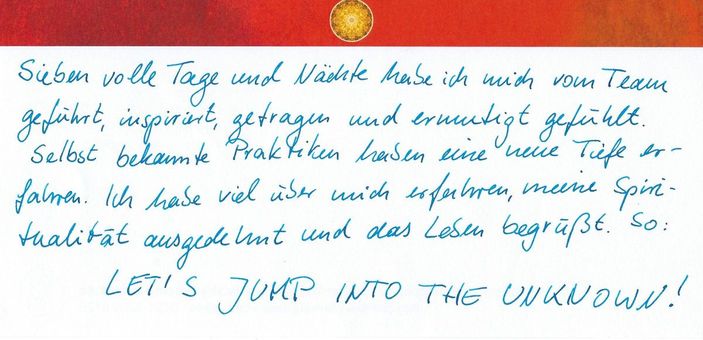 Sieben volle Tage und Nächte habe ich mich vom Team
geführt, inspiriert, getragen und ermutigt gefühlt.
Selbst bekannte Praktiken haben eine neue Tiefe er-
fahren. Ich habe viel über mich erfahren, meine Spiri-
tualität ausgedehnt und das Leben begrüßt. So:
LET'S JUMP INTO THE UNKNOWN!